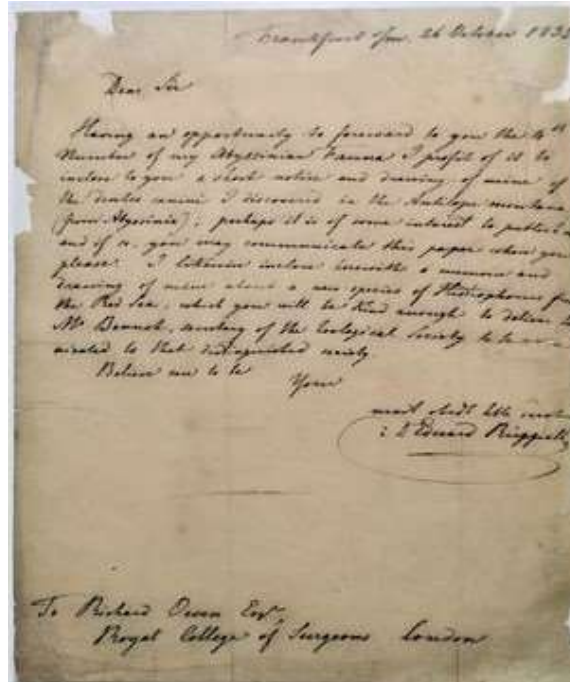 Frankfurt o/m. 26 October 183
Dear Sir
Having an opportunity to forward to you the 4th
Number of my Abyssinian Fauna I profit of it to
inclose to you a short notice and drawing of mine of
the dentes canini I discovered in the Antilope montana
(from Abyssinia); perhaps it is of some interest to publish
and if so, you may communicate this paper when you
please. I likewise inclose herewith a memoir and
drawing of mine about a new species of
the Red Sea, which you will be kind enough to deliver to
Mr Bennet, secretary of the Zoological Society to be
to that distinguished society
Believe me to be
Your
most obedt
Dr Eduard Rüppell
To Richard Owen Esqr
Royal College of Surgeons London